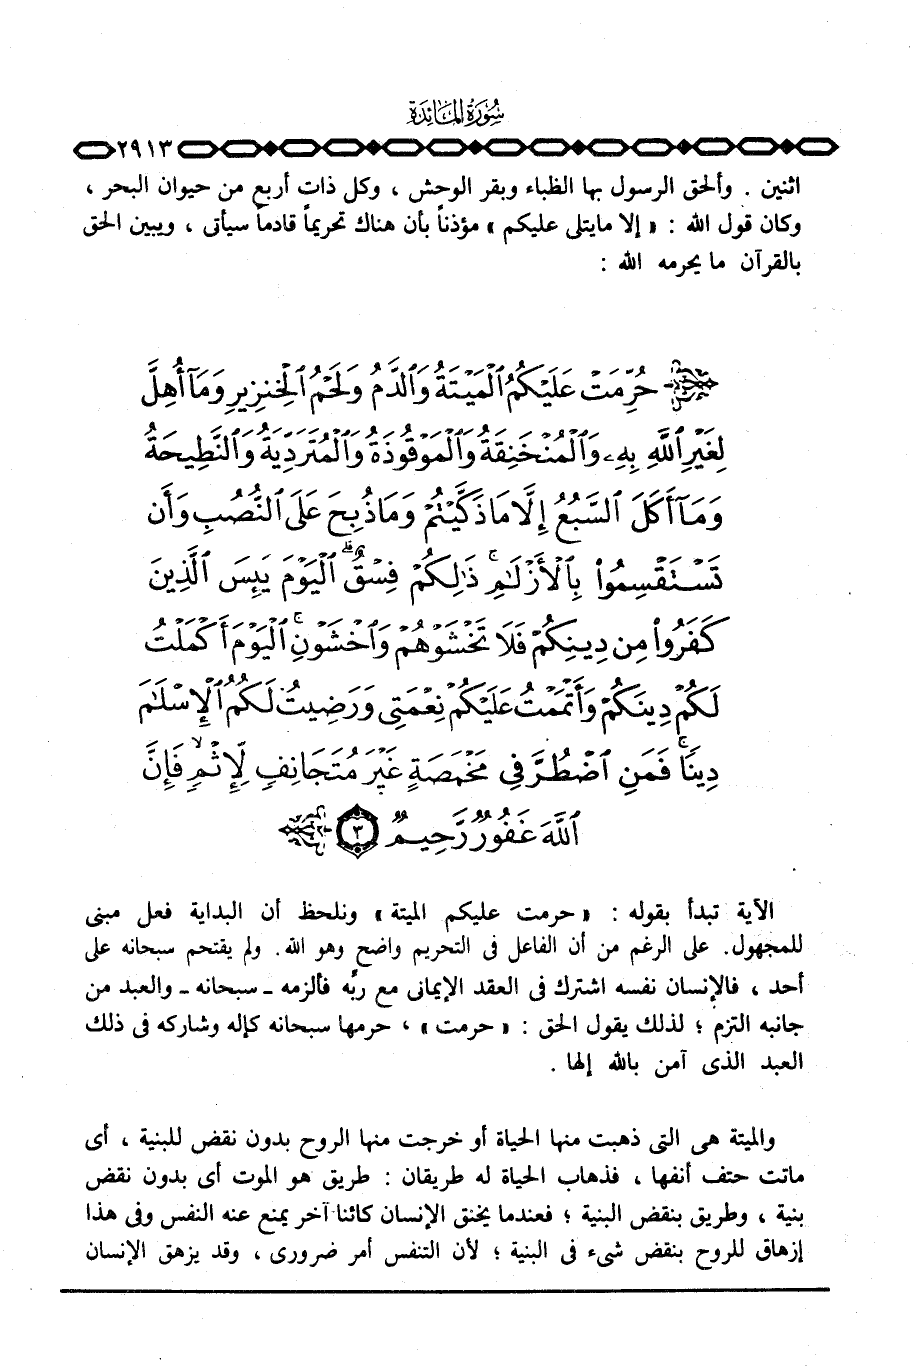 سُورَةُ المَائِدَةِ
٢٩١٣
اثنين . وألحق الرسول بها الظباء وبقر الوحش ، وكل ذات أربع من حيوان البحر ،
وكان قول الله : « إلا مايتلى عليكم » مؤذناً بأن هناك تحريماً قادماً سيأتى ، ويبين الحق
بالقرآن ما يحرمه الله :
حُرِّمَتْ عَلَيْكُمُ ٱلْمَيْتَةُ وَٱلدَّمُ وَلَحْمُ ٱلْخِنزِيرِ وَمَآ أُهِلَّ
لِغَيْرِ ٱللَّهِ بِهِۦ وَٱلْمُنْخَنِقَةُ وَٱلْمَوْقُوذَةُ وَٱلْمُتَرَدِّيَةُ وَٱلنَّطِيحَةُ
وَمَآ أَكَلَ ٱلسَّبُعُ إِلَّا مَا ذَكَّيْتُمْ وَمَا ذُبِحَ عَلَى ٱلنُّصُبِ وَأَن
تَسْتَقْسِمُوا۟ بِٱلْأَزْلَٰمِ ۚ ذَٰلِكُمْ فِسْقٌ ۗ ٱلْيَوْمَ يَئِسَ ٱلَّذِينَ
كَفَرُوا۟ مِن دِينِكُمْ فَلَا تَخْشَوْهُمْ وَٱخْشَوْنِ ۚ ٱلْيَوْمَ أَكْمَلْتُ
لَكُمْ دِينَكُمْ وَأَتْمَمْتُ عَلَيْكُمْ نِعْمَتِى وَرَضِيتُ لَكُمُ ٱلْإِسْلَٰمَ
دِينًا ۚ فَمَنِ ٱضْطُرَّ فِى مَخْمَصَةٍ غَيْرَ مُتَجَانِفٍ لِّإِثْمٍ ۙ فَإِنَّ
ٱللَّهَ غَفُورٌ رَّحِيمٌ ٣
الآية تبدأ بقوله : « حرمت عليكم الميتة » ونلحظ أن البداية فعل مبنى
للمجهول. على الرغم من أن الفاعل فى التحريم واضح وهو الله. ولم يقتحم سبحانه على
أحد ، فالإنسان نفسه اشترك فى العقد الإيمانى مع ربِّه فألزمه ـ سبحانه ـ والعبد من
جانبه التزم ؛ لذلك يقول الحق : « حرمت » ، حرمها سبحانه كإله وشاركه فى ذلك
العبد الذى آمن بالله إلها .
والميتة هى التى ذهبت منها الحياة أو خرجت منها الروح بدون نقض للبنية ، أى
ماتت حتف أنفها ، فذهاب الحياة له طريقان : طريق هو الموت أى بدون نقض
بنية ، وطريق بنقض البنية ؛ فعندما يخنق الإنسان كائنا آخر يمنع عنه النفس وفى هذا
إزهاق للروح بنقض شىء فى البنية ؛ لأن التنفس أمر ضرورى ، وقد يزهق الإنسان